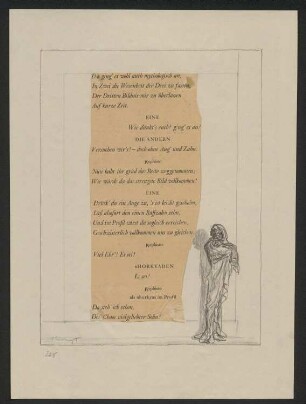 Da ging' es wohl auch mythologisch an,
In Zwei die Wesenheit der Drei zu fassen,
Der Dritten Bildnis mir zu überlassen
Auf kurze Zeit.
EINE
Wie dünkt's euch? ging' es an?
DIE ANDERN
Versuchen wir's! – doch ohne Aug' und Zahn.
Nun habt ihr grad das Beste weggenommen;
Wie würde da das strengste Bild vollkommen!
EINE
Drück' du ein Auge zu, 's ist leicht geschehn,
Laß alsofort den einen Raffzahn sehn,
Und im Profil wirst du sogleich erreichen,
Geschwisterlich vollkommen uns zu gleichen.
Viel Ehr'! Es sei!
PHORKYADEN
Es sei!
als Phorkyas im Profil
Da steh' ich schon,
Des Chaos vielgeliebter Sohn!